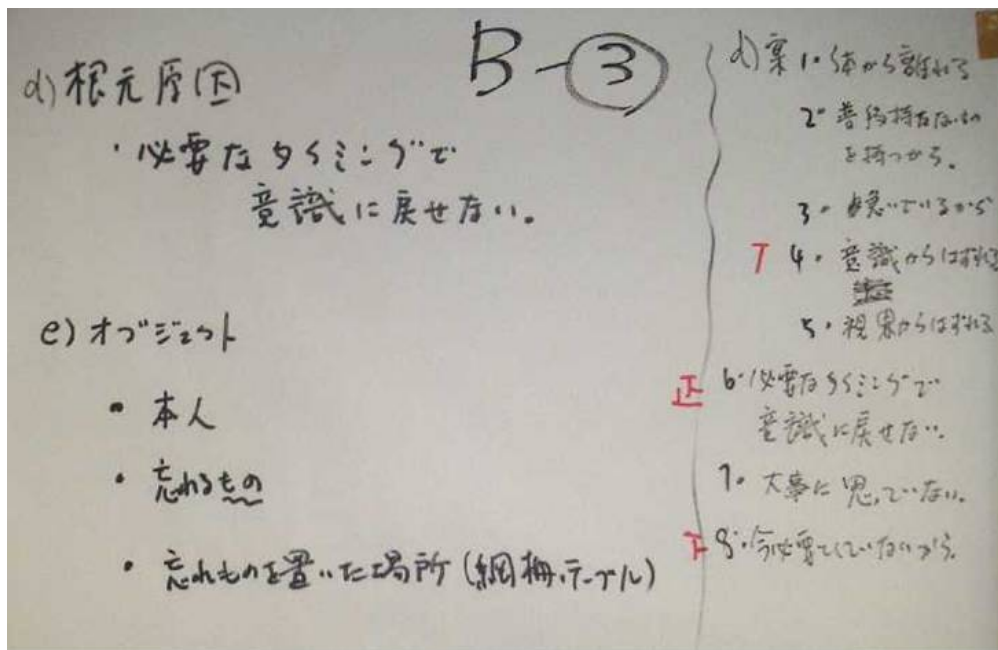 B-③
d) 根元原因
・必要なタイミングで
意識に戻せない。
e) オブジェクト
・本人
・忘れるもの
・忘れものを置いた場所(網棚、テーブル)
d) 案 1・体から離れる
2・普段持たないもの
を持つから。
3・急いでいるから
T 4・意識からはずれる
5・視界からはずれる
正 6・必要なタイミングで
意識に戻せない。
7・大事に思っていない。
下 8・今必要としていないから。